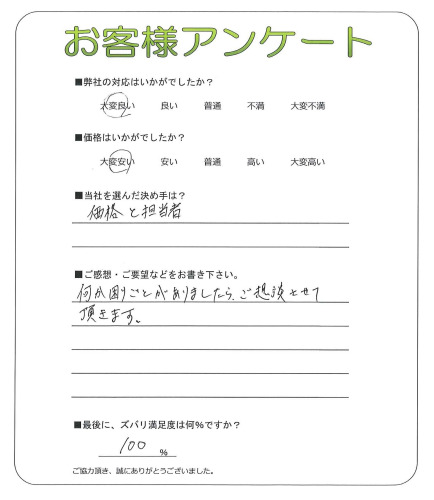 お客様アンケート
■弊社の対応はいかがでしたか?
大変良い 良い 普通 不満 大変不満
■価格はいかがでしたか?
大変安い 安い 普通 高い 大変高い
■当社を選んだ決め手は?
価格と担当者
■ご感想・ご要望などをお書き下さい。
何か困りごとがありましたら、ご相談させて
頂きます。
■最後に、ズバリ満足度は何%ですか?
100 %
ご協力頂き、誠にありがとうございました。